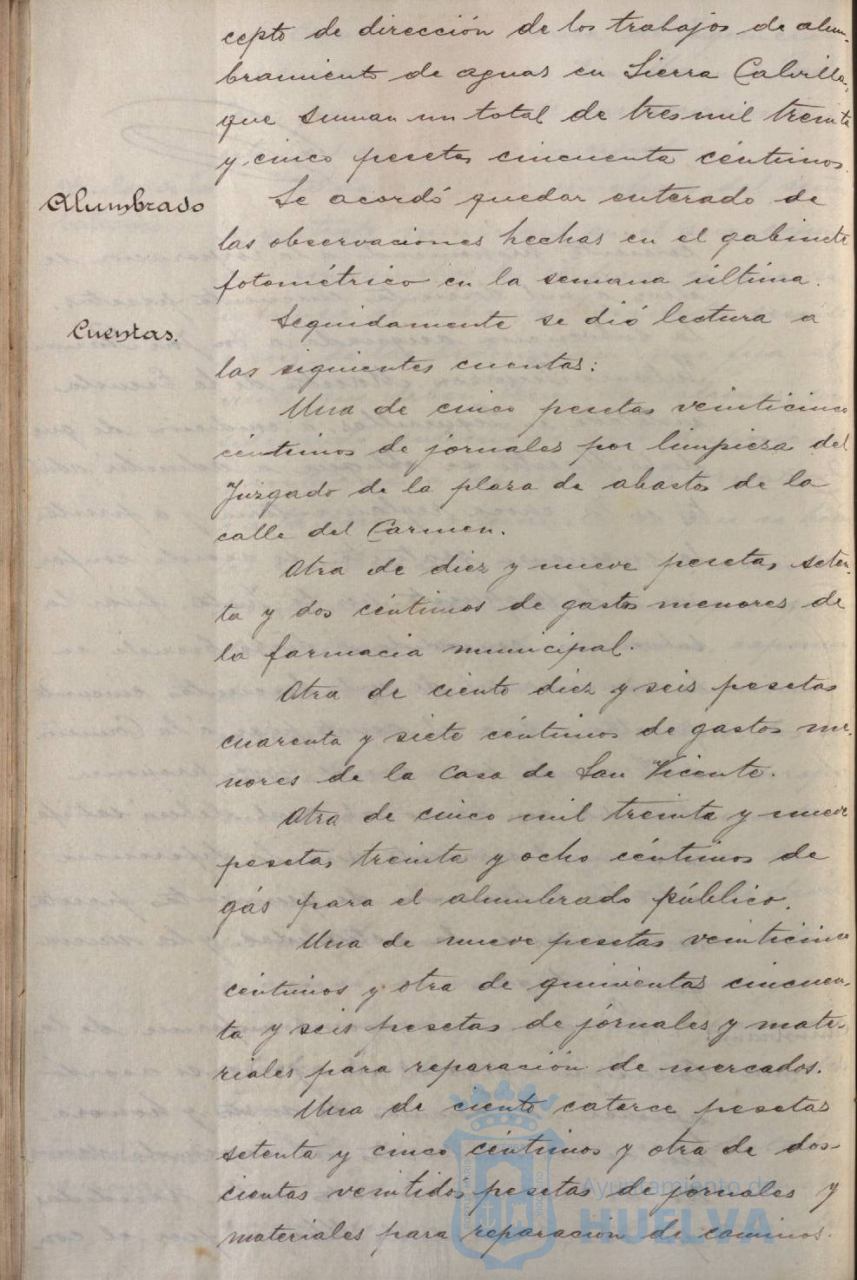 cepto de dirección de los trabajos de alum-
bramiento de aguas en Sierra Calvilla,
que suman un total de tres mil treinta
y cinco pesetas cincuenta céntimos.
Alumbrado
Se acordó quedar enterado de
las observaciones hechas en el gabinete
fotométrico en la semana última.
Cuentas.
Seguidamente se dió lectura a
las siguientes cuentas:
Una de cinco pesetas veinticinco
céntimos de jornales por limpieza del
Juzgado de la plaza de abastos de la
calle del Carmen.
Otra de diez y nueve pesetas, seten-
ta y dos céntimos de gastos menores de
la farmacia municipal.
Otra de ciento diez y seis pesetas
cuarenta y siete céntimos de gastos me-
nores de la Casa de San Vicente.
Otra de cinco mil treinta y nueve
pesetas treinta y ocho céntimos de
gás para el alumbrado público.
Una de nueve pesetas veinticinco
céntimos y otra de quinientas cincuen-
ta y seis pesetas de jornales y mate-
riales para reparación de mercados.
Una de ciento catorce pesetas
setenta y cinco céntimos y otra de dos-
cientas veintidos pesetas de jornales y
materiales para reparación de caminos.
Ayuntamiento de
HUELVA